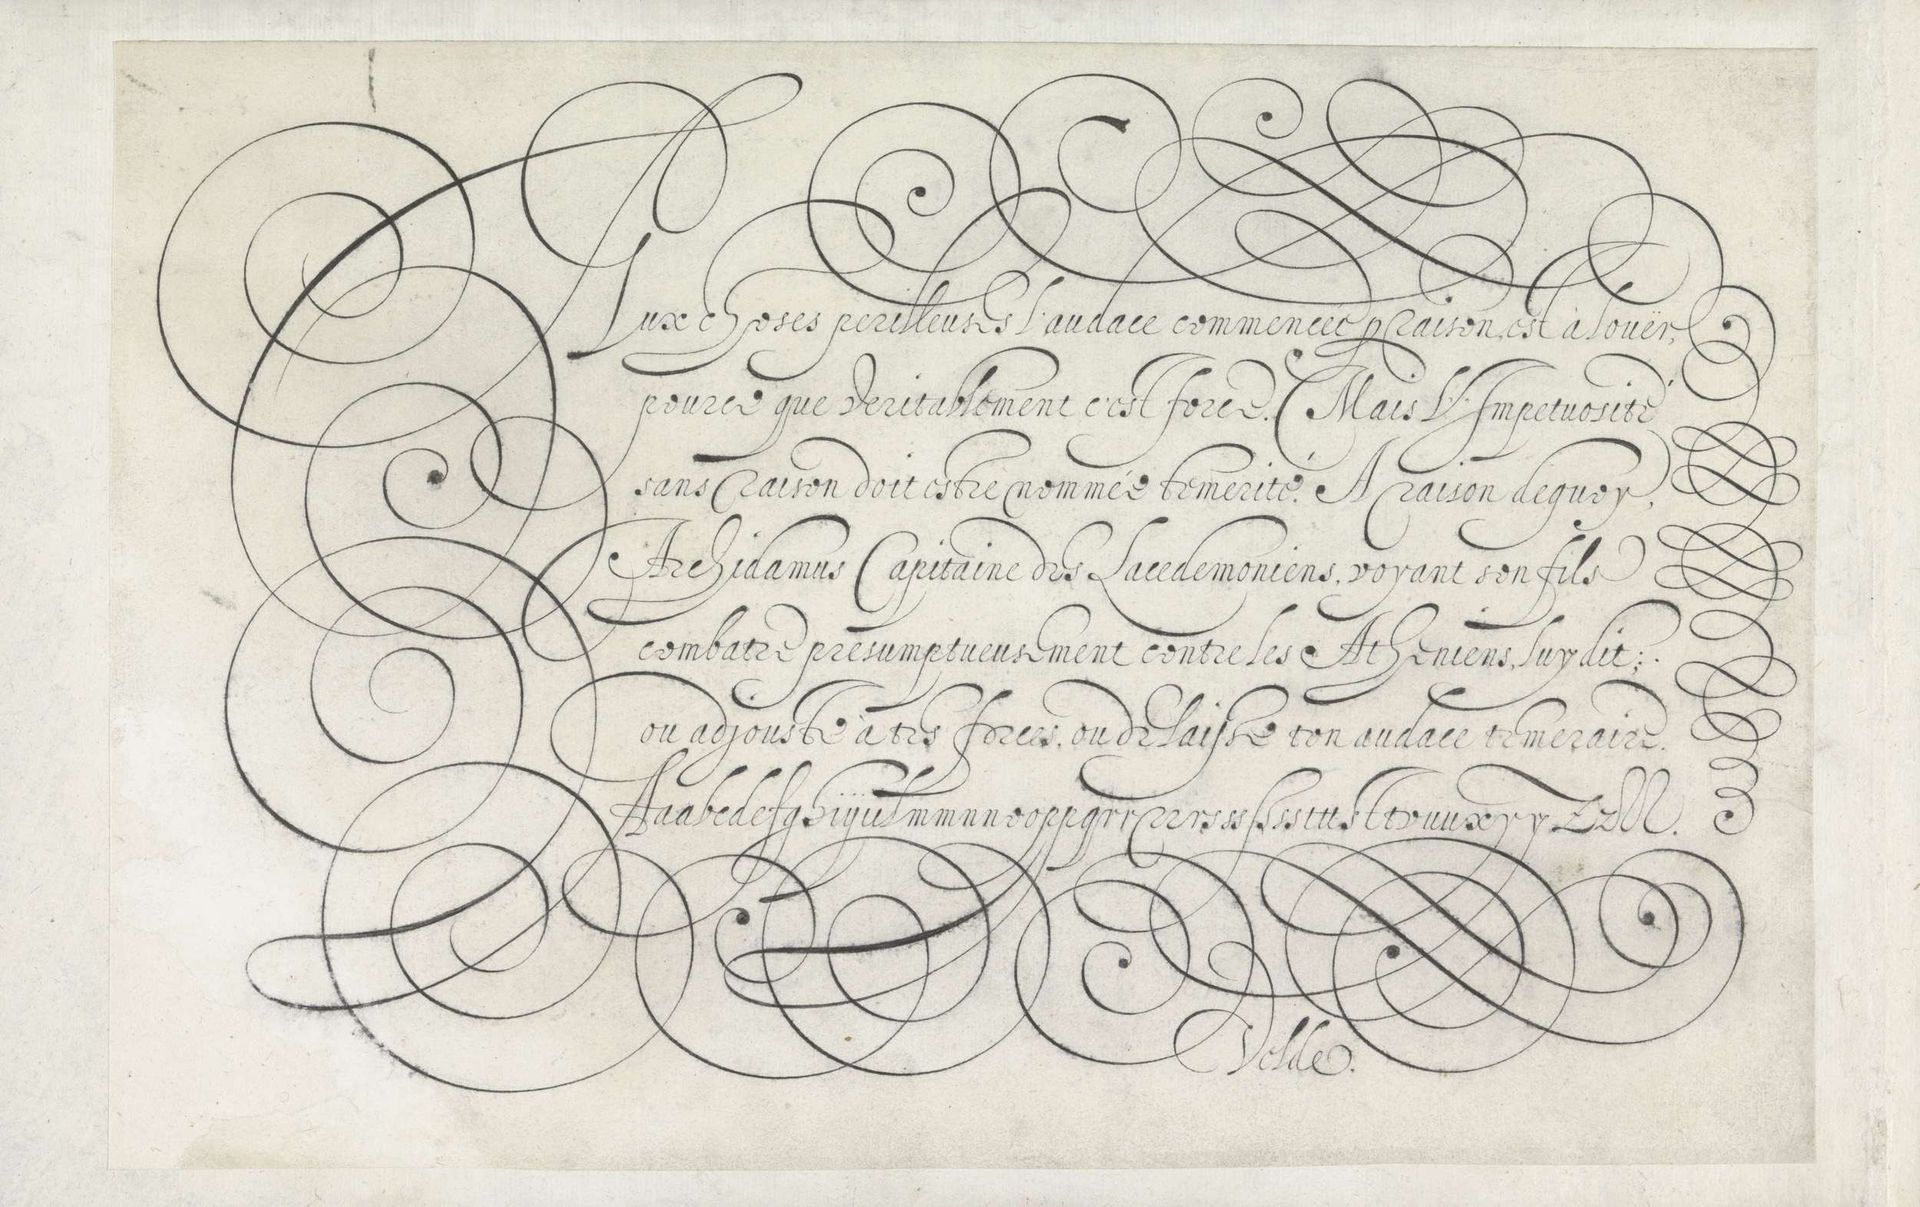 Aux choses perilleuses l'audace commencée p raison, est à louër,
pource que veritablement c'est force. Mais l'Impetuosité
sans raison doit estre nommée temerité. A raison dequoy,
Archidamus Capitaine des Lacedemoniens, voyant son fils
combatre presumptueusement contre les Atheniens, luy dit:
ou adjouste à tes forces, ou delaisse ton audace temeraire.
Velde.